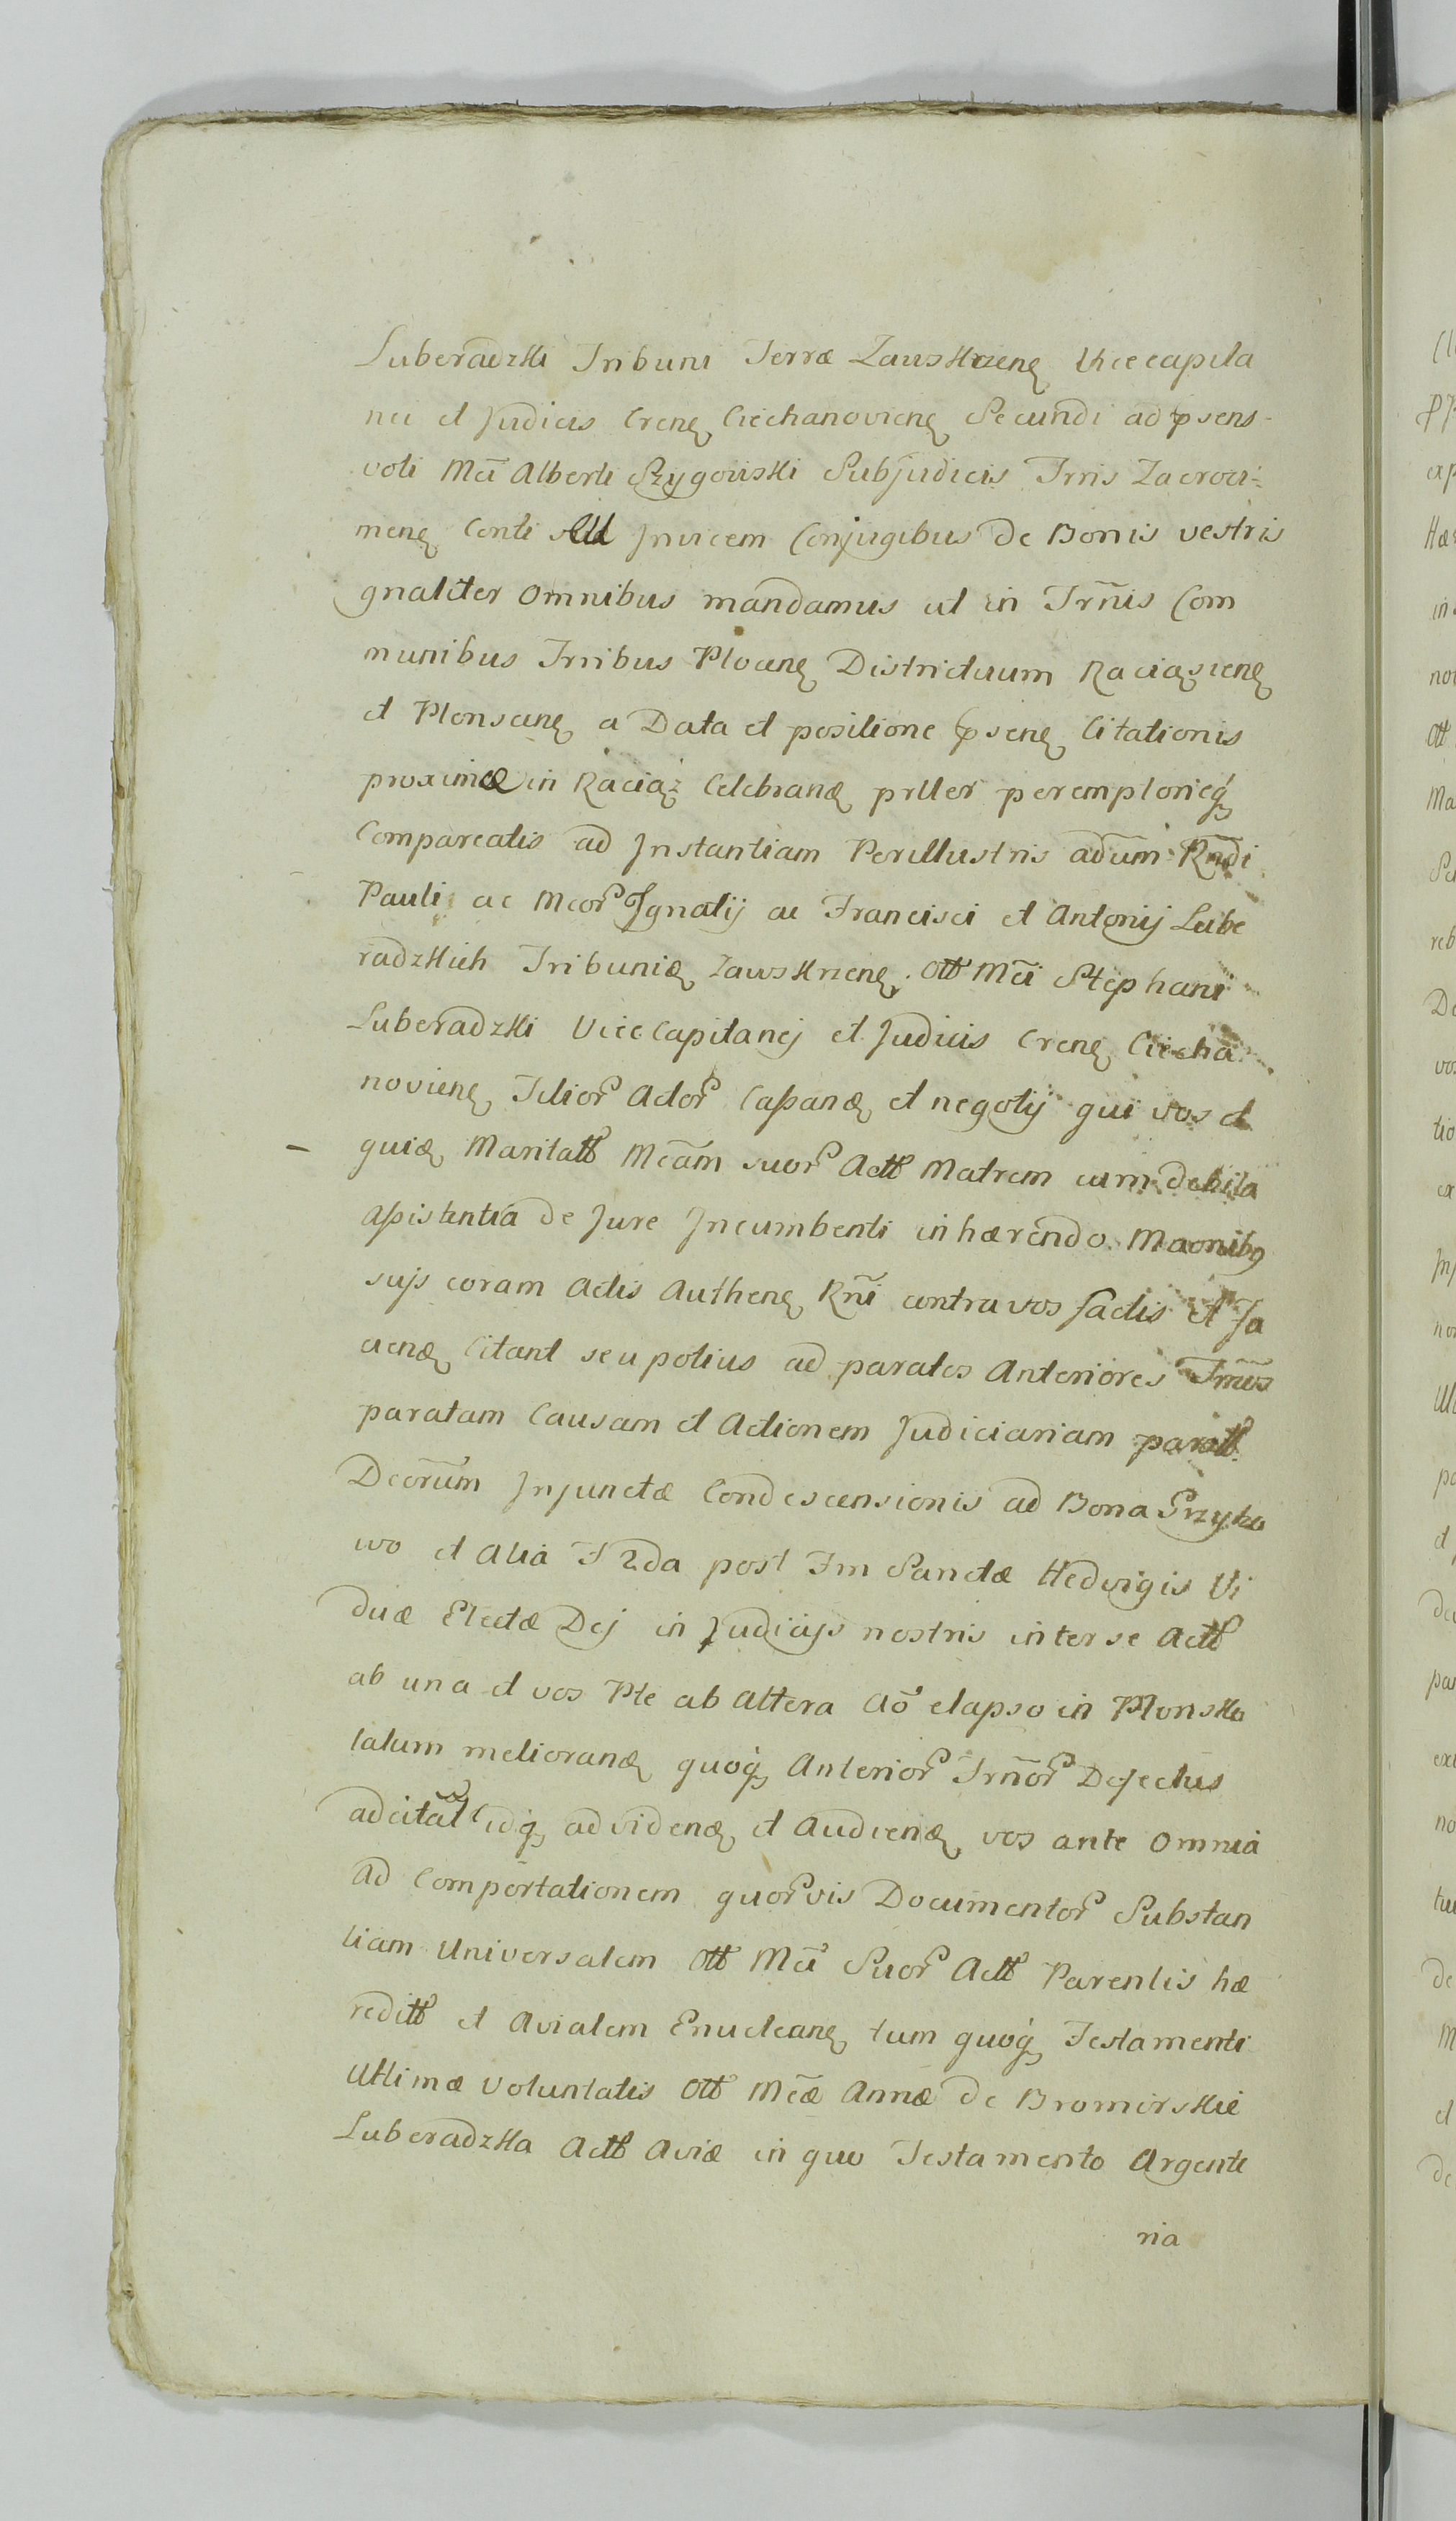 Luberadzki Tribuni Terræ Zawskrzenę Vicecapita
nei et Judicis Crenę Ciechanovienę Secundi ad psens
voti Mci Alberti Szygowski Subjudicis Trris Zacroci-
menę Conti Invicem Conjugibus de Bonis vestris
gnaliter omnibus mandamus ut in Trnis Com
munibus Trribus Plocenę Districtuum Raciązienę
et Plonscenę a Data et positione psenę Citationis
proximæ in Raciąż Celebranę prller peremptorieq
Compareatis ad Instantiam Perillustris adum Rndi
Pauli ac Mcor Ignatij ac Francisci et Antonij Lube
radzkich Tribunię Zawskrzenę Ott Mci Stephani
Luberadzki Vice Capitanej et Judicis Crenę Ciecha
novienę Filior Actor Cassanę et negotij qui vos et
quię Maritatt Mcam suor Actt Matrem cum debita
assistentia de Jure Incumbenti inhærendo Maonibg
sujs coram Actis Authenę Rni contra vos factis et fa
cienę Citant seu potius ad paratos Anteriores Trnos
paratam Causam et Actionem Judiciariam paratt
Dcorum Injunctæ Condescensionis ad Bona Przyko
wo et Alia F 2da post Fm Sanctæ Hedvigis Vi
duæ Electæ Dej in Judicijs nostris inter se Actt
ab una et vos Pte ab altera Ao elapso in Plonsko
latum melioranę quoq Anterior Trnor Defectus
adcitat idq ad videnę et Audienę vos ante omnia
ad Comportationem quorvis Documentor Substan
tiam Universalem Ott Mci Suor Actt Parentis hæ
reditt et Avialem Enucleanę tum quoq Testamenti
Ultimæ Voluntatis Ott Mcæ Annæ de Bromirskie
Luberadzka Actt Aviæ in quo Testamento Argente
ria